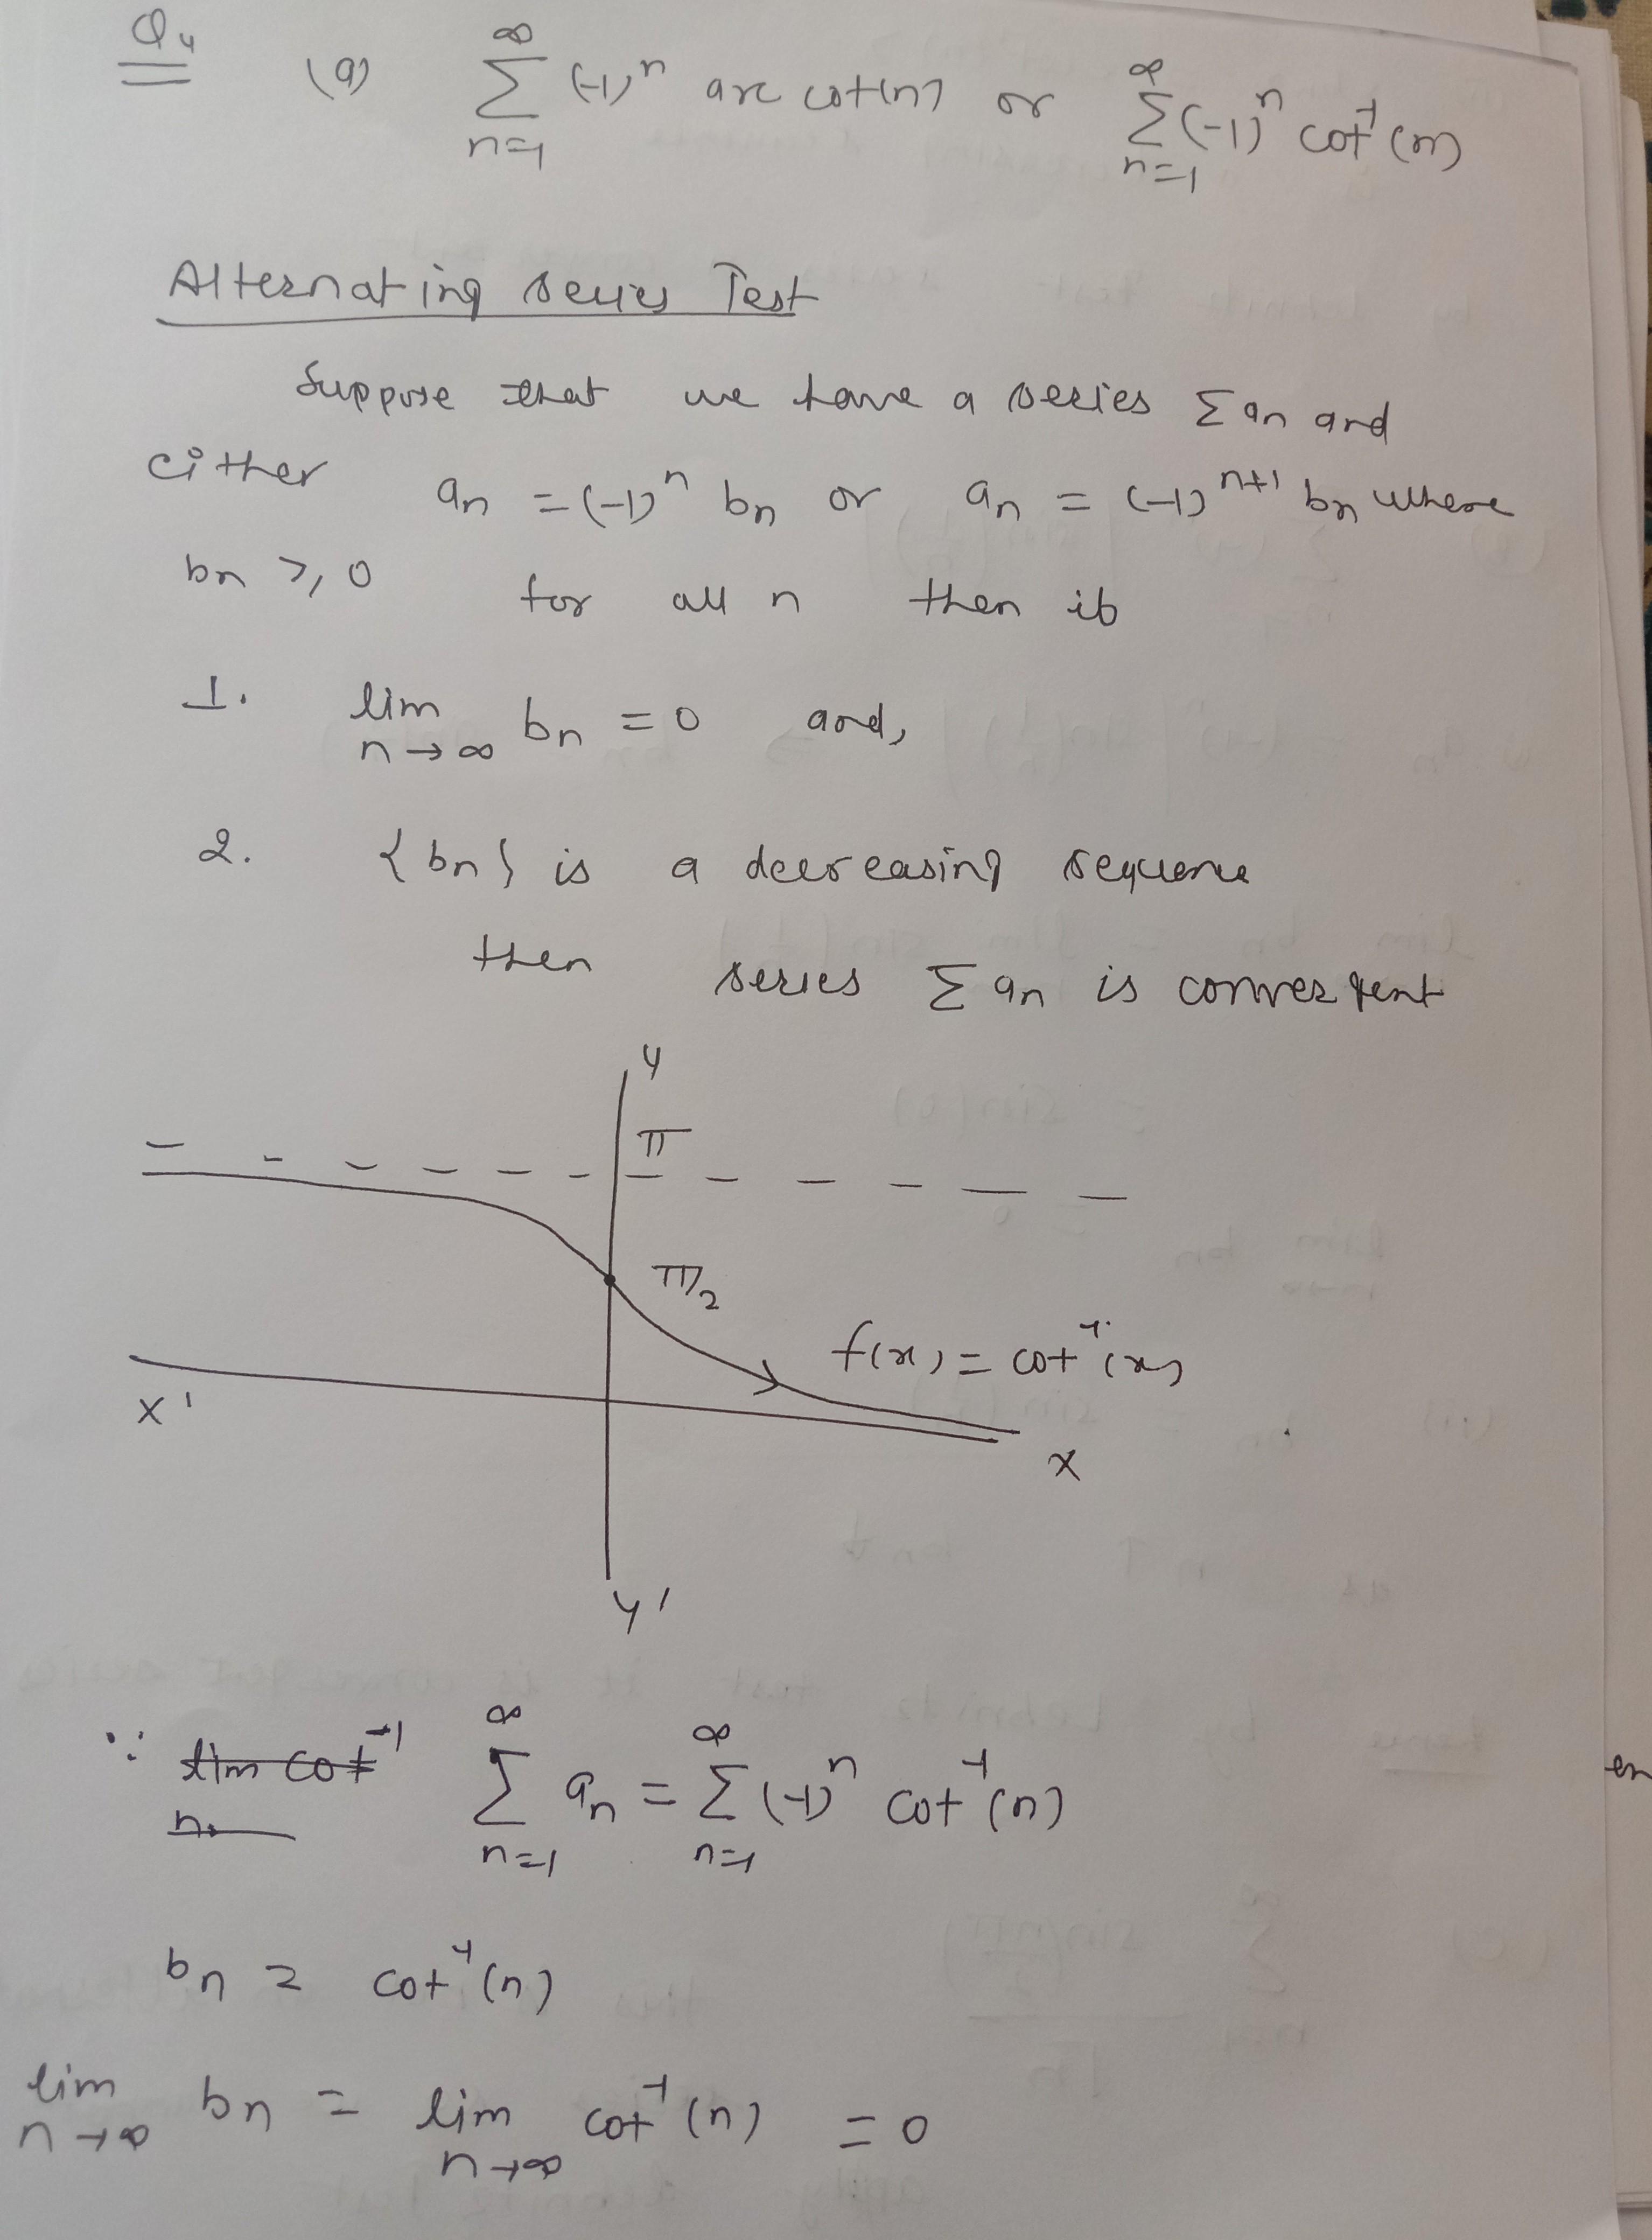 Q4 (a) ∞ Σ n=1 (-1)^n arc cot(n) or ∞ Σ n=1 (-1)^n cot^-1 (n)
Alternating series Test
Suppose that we have a series Σ an and
either an = (-1)^n bn or an = (-1)^n+1 bn where
bn ≥ 0 for all n then if
1. lim n→∞ bn = 0 and,
2. {bn} is a decreasing sequence
then series Σ an is convergent
y
π
π/2
f(x) = cot^-1 (x)
x'
x
y'
∵ ∞ Σ n=1 an = ∞ Σ n=1 (-1)^n cot^-1 (n)
bn = cot^-1 (n)
lim n→∞ bn = lim n→∞ cot^-1 (n) = 0